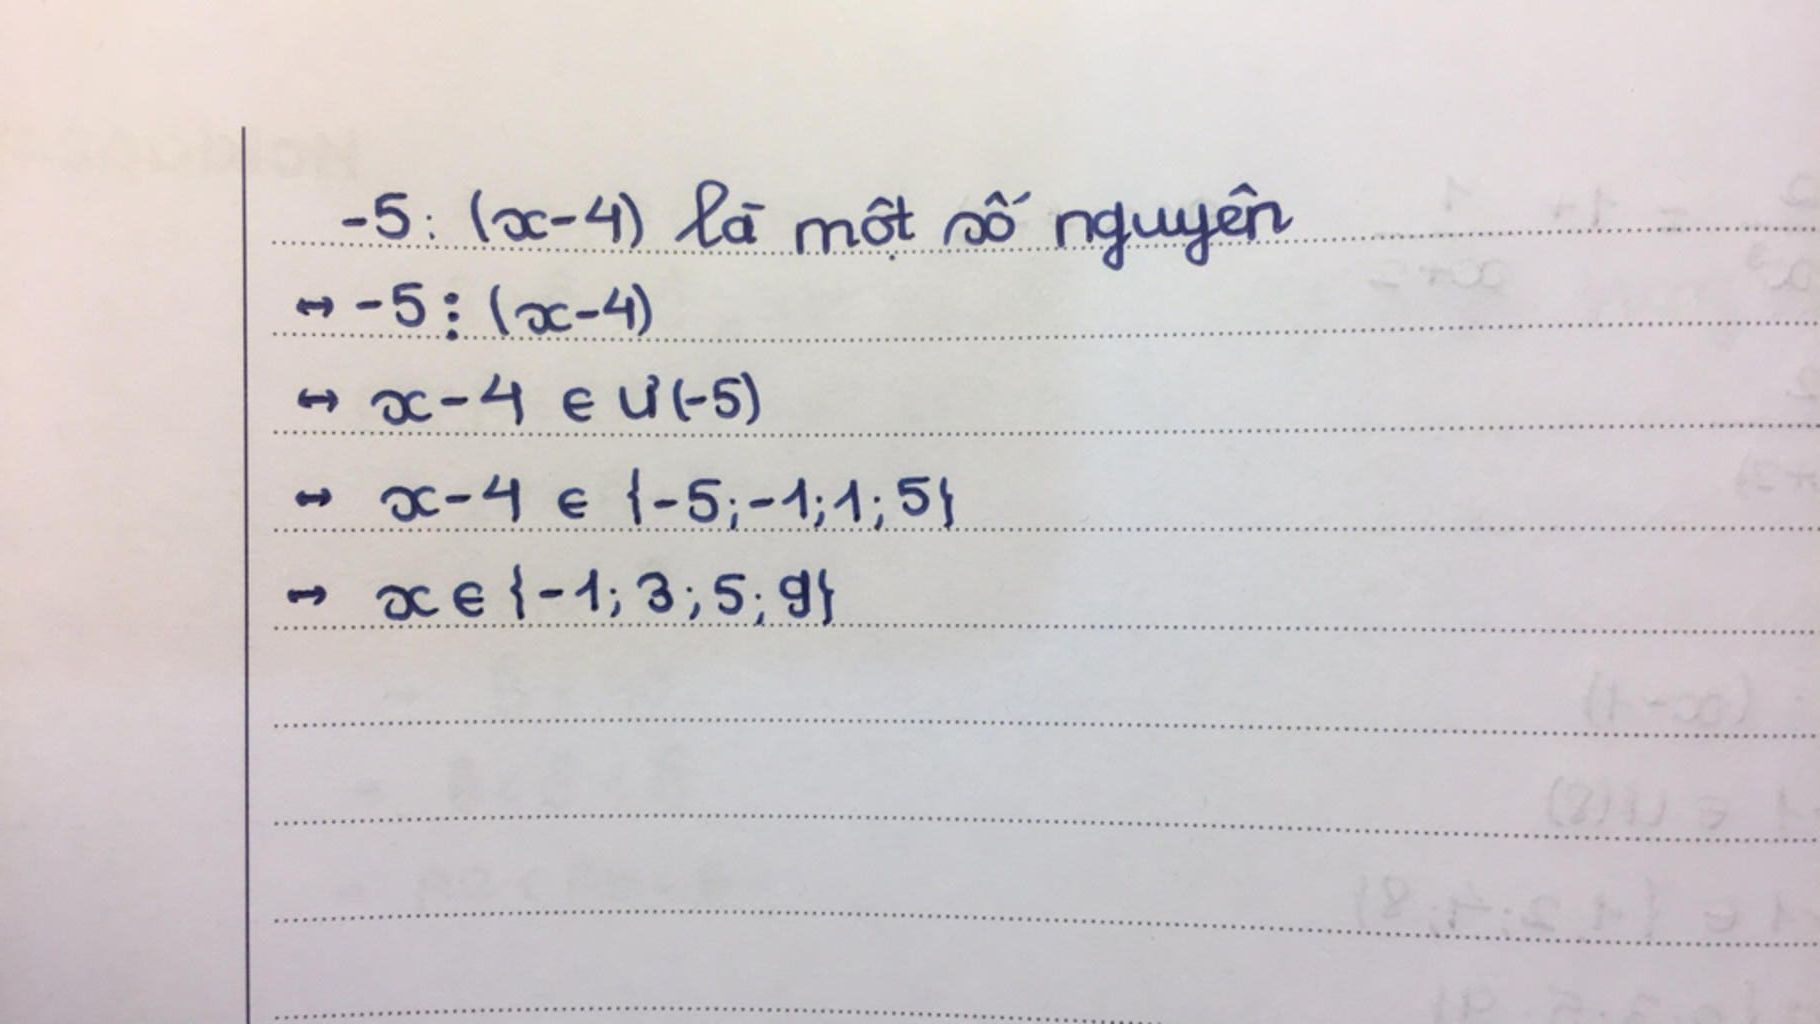 -5: (x-4) là một số nguyên
↔ -5⋮ (x-4)
↔ x-4 ∈ Ư(-5)
↔ x-4 ∈ {-5;-1;1;5}
↔ x∈{-1; 3; 5; 9}